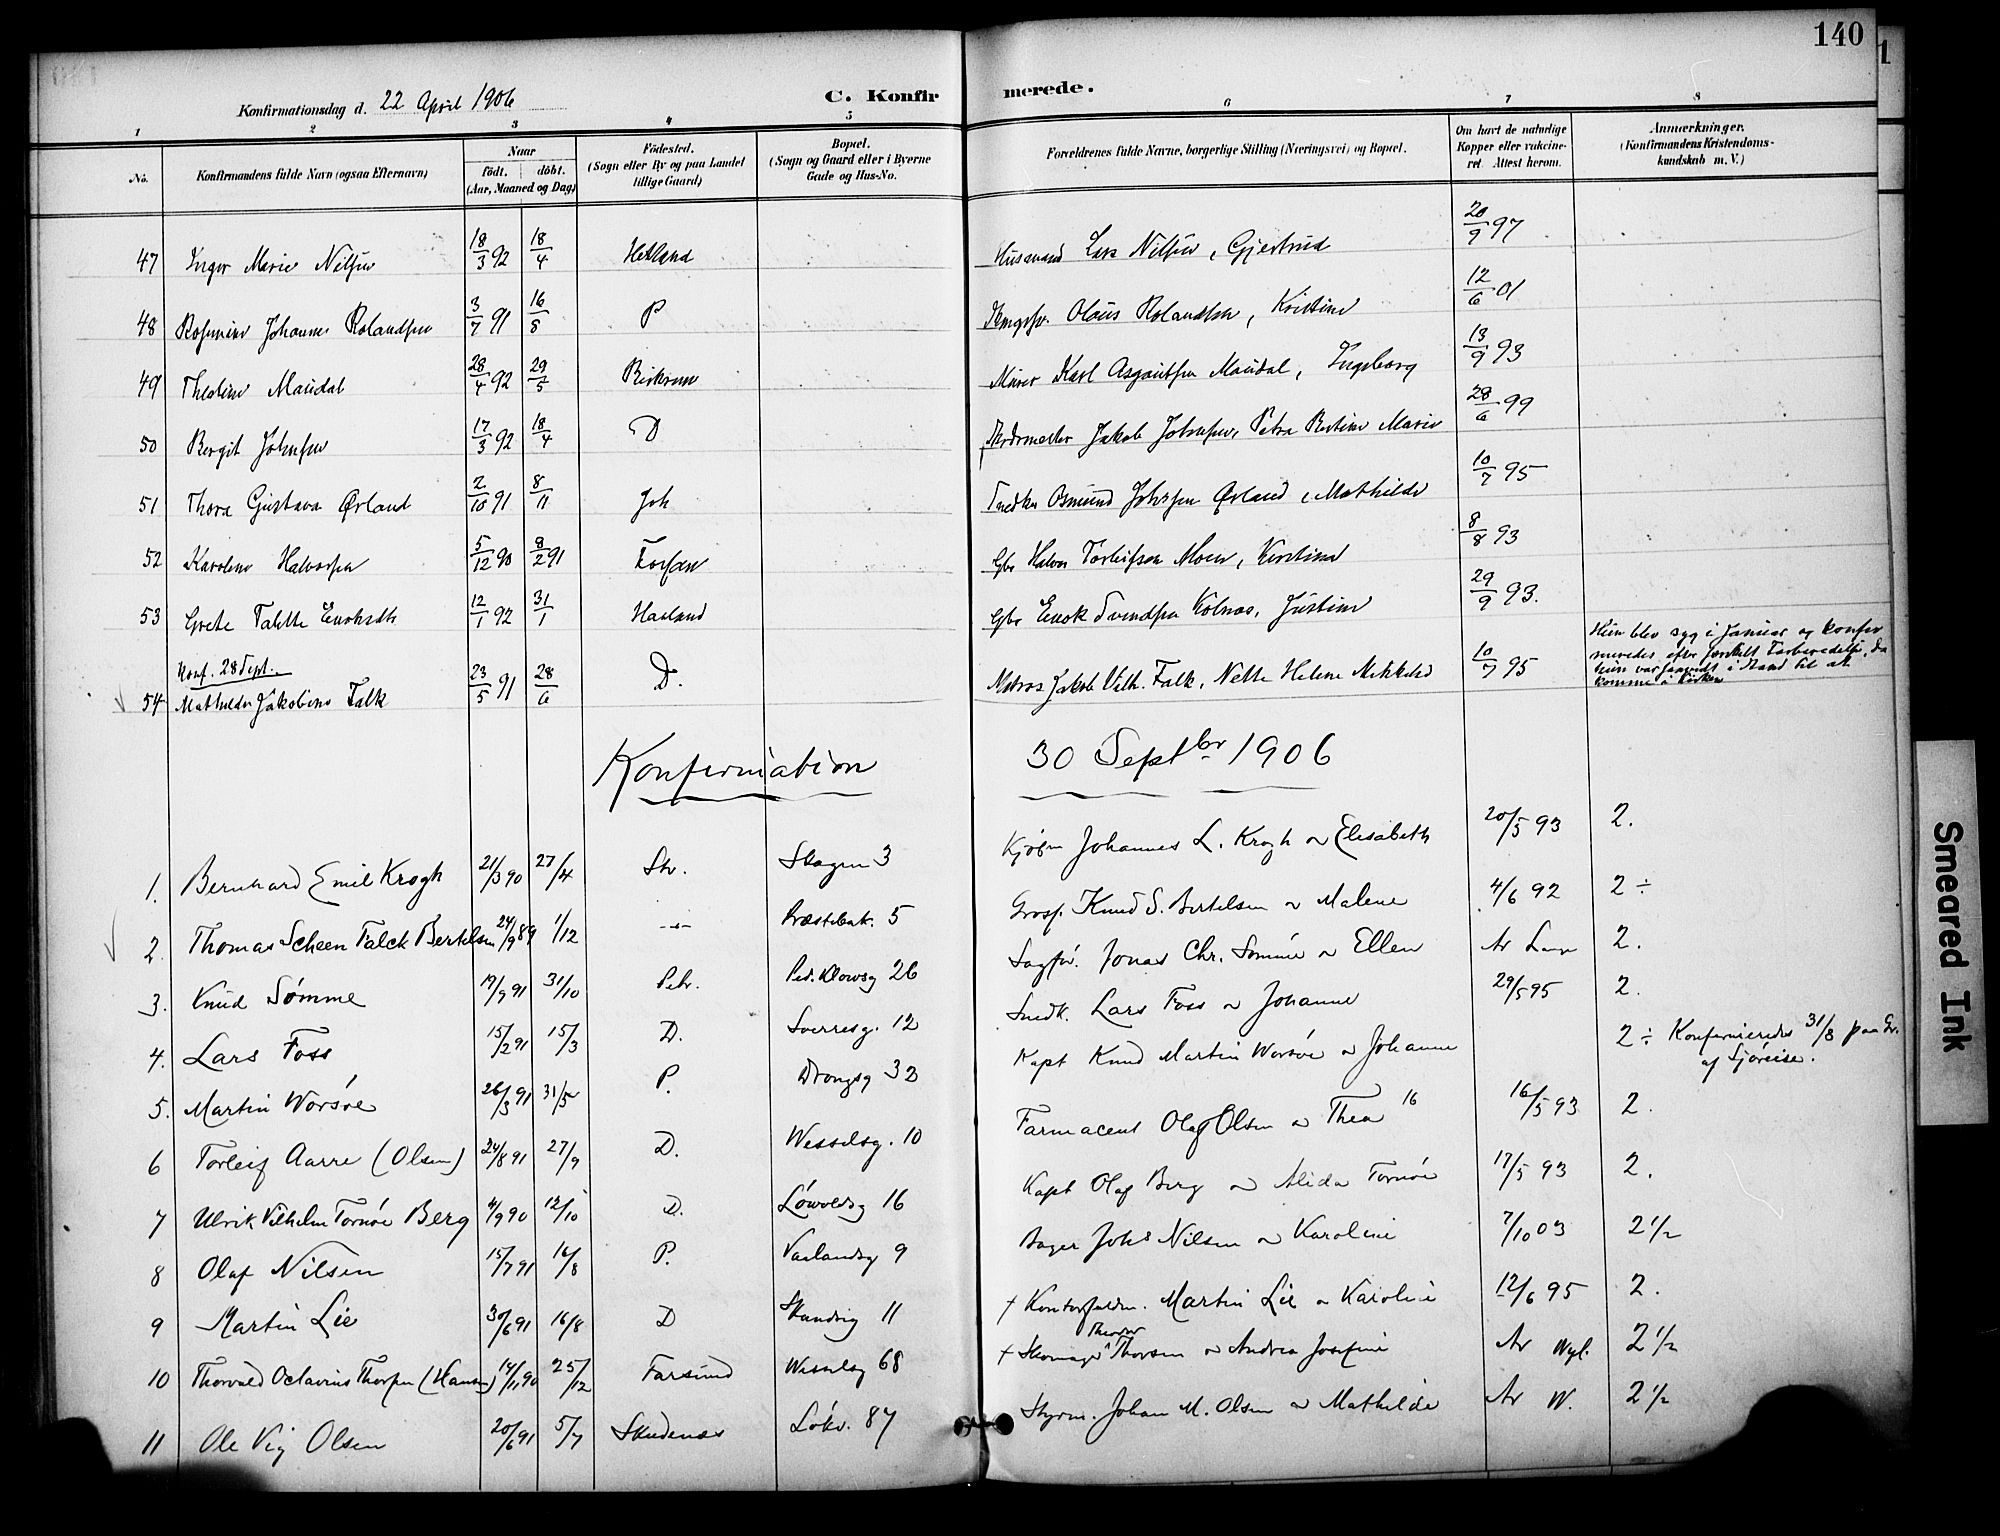 140
Konfirmationsdag d. 22 April 1906
C. Konfirmerede.
1 2 3 4 5 6 7 8
No. Konfirmandens fulde Navn (ogsaa Efternavn) Naar födt. döbt. (Aar, Maaned og Dag) Födested. (Sogn eller By og paa Landet tillige Gaard) Bopæl. (Sogn og Gaard eller i Byerne Gade og Hus-No. Forældrenes fulde Navne, borgerlige Stilling (Næringsvei) og Bopæl. Om havt de naturlige Kopper eller vaccineret. Attest herom. Anmærkninger. (Konfirmandens Kristendomskundskab m. V.)
47 Inger Marie Nilsen 18/3 92 18/4 Hetland Husmand Lars Nilsen, Gjertrud 20/9 97
48 Johanne Rolandsen 3/7 91 16/8 P Olaus Rolandsen, Kristine 12/6 01
49 Maudal 28/4 92 29/5 Murer Karl Asgautsen Maudal, Ingeborg 13/9 93
50 Bergit Johnsen 17/3 92 18/4 D Jakob Johnsen, Petra Marie 28/6 99
51 Thora Gustava Ørland 2/10 91 8/11 Joh Snedker Osmund Johnsen Ørland, Mathilde 10/7 95
52 Karoline Halvorsen 5/12 90 8/2 91 Gbr Halvor Torleifsen Moen, Kirstine 8/8 93
53 Grete Talette Enoksdtr 12/1 92 31/1 Haaland Gbr Enok Svendsen Kolnas, Justine 29/9 93.
Konf. 28 Sept.
54 Mathilde Jakobine Falk 23/5 91 28/6 D. Matros Jakob Vilh. Falk, Nette Helene 10/7 95 Hun blev syg i Januar og konfirmeredes efter særskilt Forberedelse, da hun var i Stand til at komme i Kirken
Konfirmation 30 Septbr 1906
1. Bernhard Emil Krogh 21/3 90 27/4 Str. Skagen 3 Kjøbm Johannes L. Krogh o Elisabeth 20/5 93 2.
2. Thomas Scheen Falck Bertelsen 24/9 89 1/12 -"- Præstebak. 5 Gross. Knud S. Bertelsen o Malene 4/6 92 2 ÷
3. Knud Sømme 19/9 91 31/10 Petr. Ped. Klowsg 26 Sagfør. Jonas Chr. Sømme o Ellen Ar 2.
4. Lars Foss 15/2 91 15/3 D. Sverresg. 12 Snedk. Lars Foss o Johanne 29/5 95 2.
5. Martin Worsøe 26/3 91 31/5 P. Drongsg 32 Kapt Knud Martin Worsøe o Johanne 2 ÷ Konfirmeredes 31/8 paa Gr. af Sjøreise.
6 Torleif Aarre (Olsen) 24/8 91 27/9 D. Wesselsg. 10 Farmaceut Olaf Olsen o Thea 16/5 93 2.
7 Ulrik Vilhelm Tornøe Berg 4/9 90 12/10 D. Løwoldsg 16 Kapt Olaf Berg o Alida Tornøe 17/5 93 2.
8 Olaf Nilsen 15/7 91 16/8 P. Vaalandsg 9 Bager Johs Nilsen o Karoline 7/10 03 2 1/2
9 Martin Lie 30/6 91 16/8 D 11 + Martin Lie o Karoline 12/6 95 2.
10 Thorvald Octavius Thorsen (Hansen) 14/11 90 25/12 Farsund Wesselsg 68 + Skomager Theodor Thorsen o Andrea Josefine Ar 2 1/2
11 Ole Vig Olsen 20/6 91 5/7 Skudenes Løkv. 87 Styrm. Johan M. Olsen o Mathilde Ar W. 2 1/2
Smeared Ink